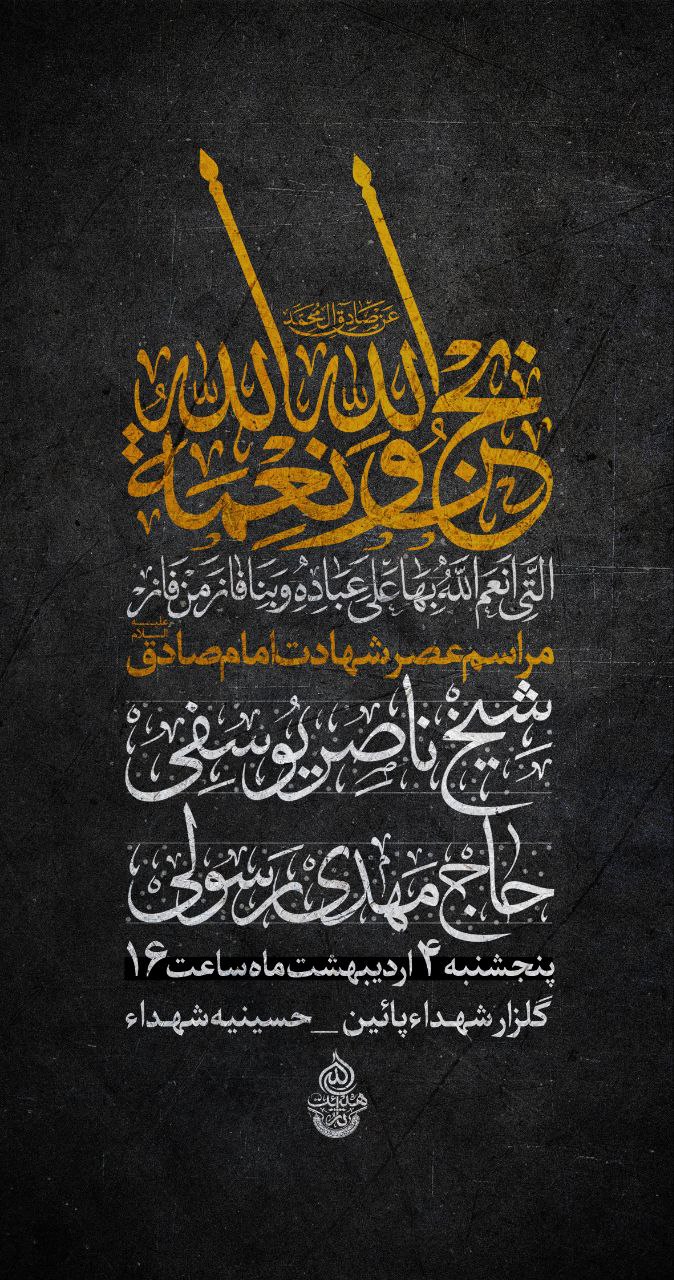 عَن صَادِقِ آلِ مُحَمَّد
نحن والله نعمة الله
الَّتِی اَنعَمَ اللّٰهُ بِهَا عَلی عِبَادِهِ وَ بِنَا فَازَ مَن فَازَ
مراسم عصر شهادت امام صادق علیه السلام
شیخ ناصر یوسفی
حاج مهدی رسولی
پنجشنبه ۴ اردیبهشت ماه ساعت ۱۶
گلزار شهداء پائین _ حسینیه شهداء